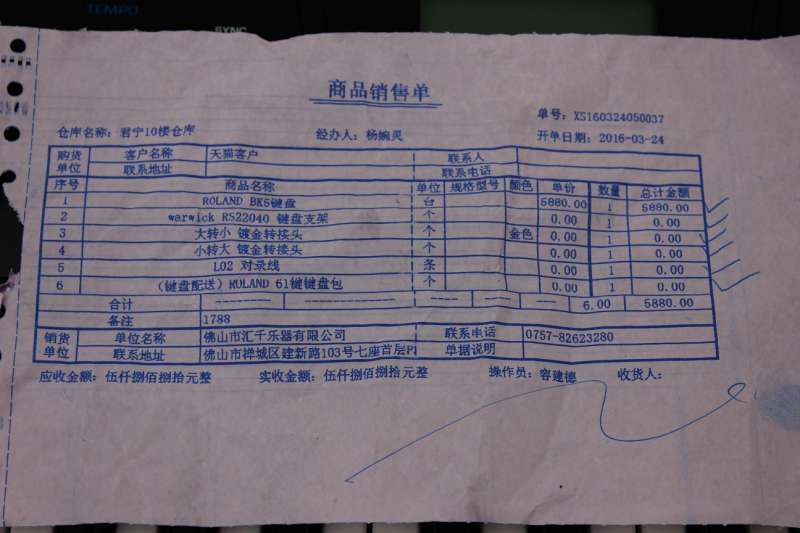 TEMPO
SYNC
商品销售单
单号: XS160324050037
仓库名称: 君宁10楼仓库 经办人: 杨婉灵 开单日期: 2016-03-24
购货单位 客户名称 天猫客户 联系人
联系地址 联系电话
序号 商品名称 单位 规格型号 颜色 单价 数量 总计金额
1 ROLAND BK5键盘 台 5880.00 1 5880.00
2 warwick RS22040 键盘支架 个 0.00 1 0.00
3 大转小 镀金转接头 个 金色 0.00 1 0.00
4 小转大 镀金转接头 个 0.00 1 0.00
5 L02 对录线 条 0.00 1 0.00
6 (键盘配送) ROLAND 61键键盘包 个 0.00 1 0.00
合计 6.00 5880.00
备注 1788
销货单位 单位名称 佛山市汇千乐器有限公司 联系电话 0757-82623280
联系地址 佛山市禅城区建新路103号七座首层P1 单据说明
应收金额: 伍仟捌佰捌拾元整 实收金额: 伍仟捌佰捌拾元整 操作员: 容建德 收货人: